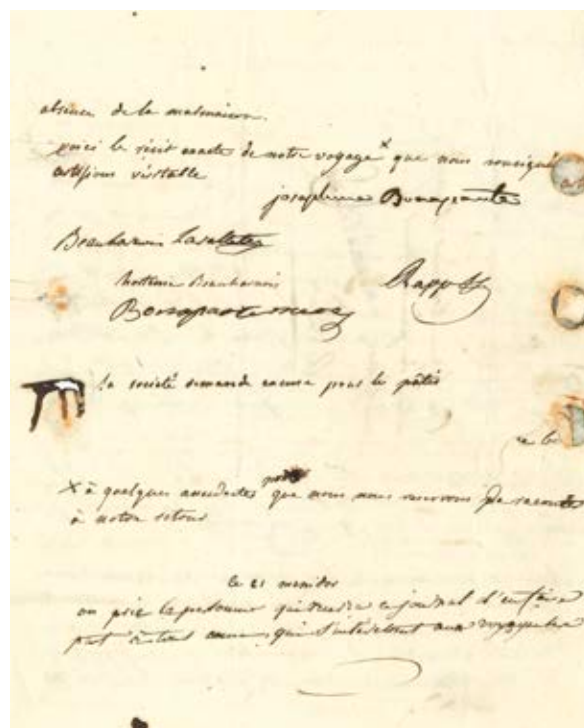 absence de la malmaison.
voici le récit exacte de notre voyage x que nous
certifions véritable
josephine Bonaparte
Beauharnais Lavallette
hortense Beauharnais Rapp
Bonaparte mere
la société demande excuse pour les pâtés
ce
x à quelques anecdotes que nous nous reservons de raconter
à notre retour
le 21 messidor
on prie la personne qui recevra ce journal d'en faire
part à tous ceux qui s'intéressent aux voyageurs